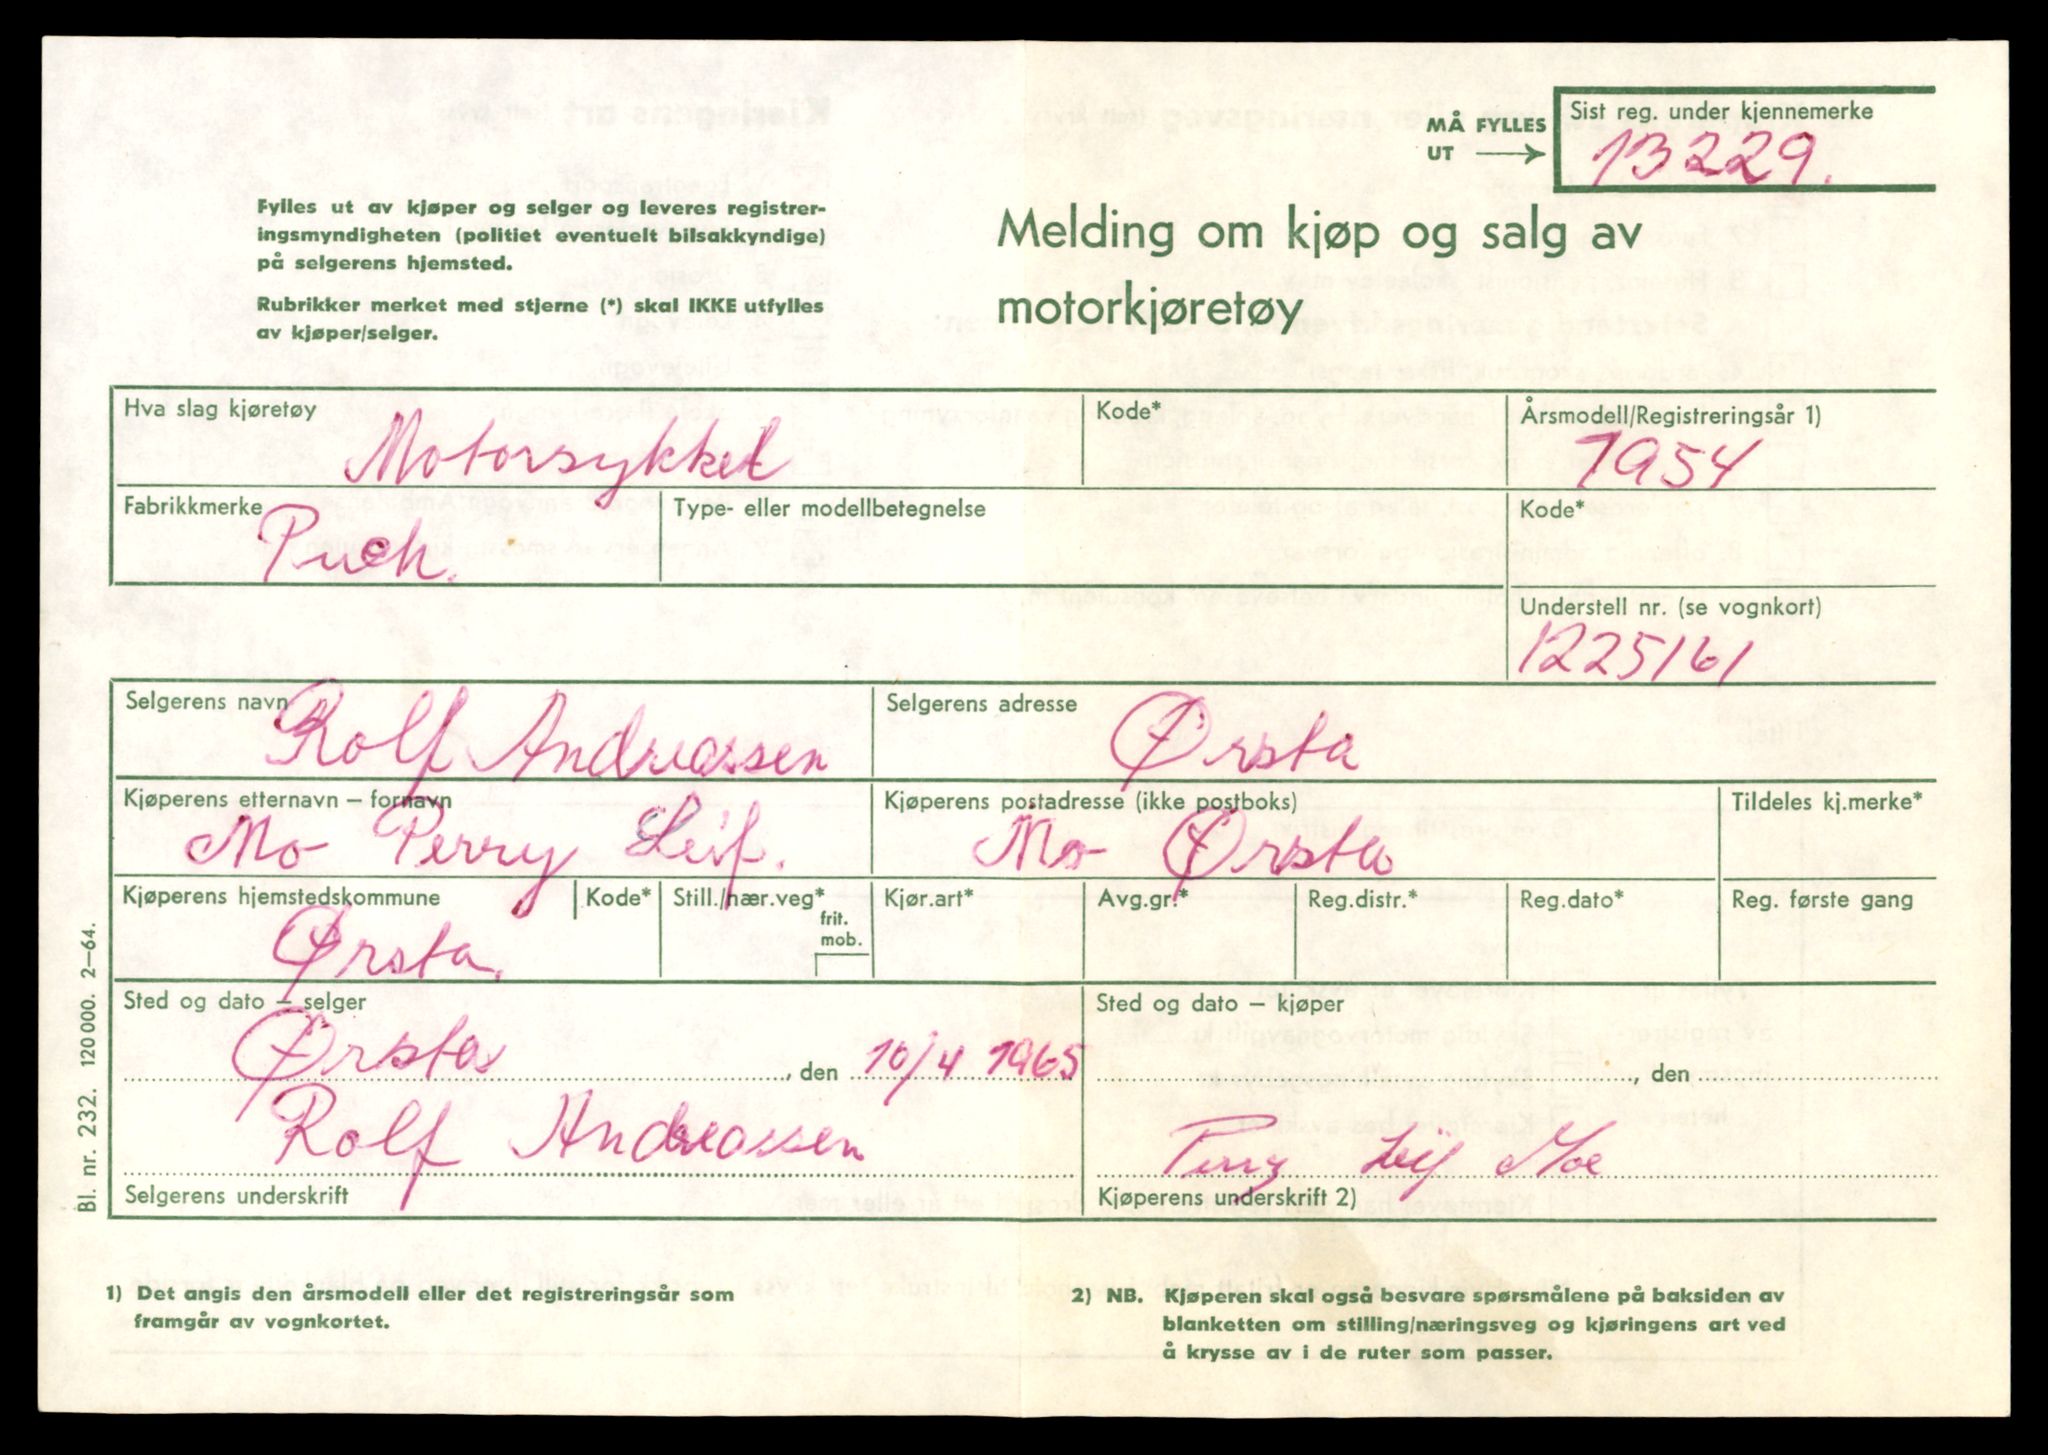 MÅ FYLLES
UT
Sist reg. under kjennemerke
13229.
Fylles ut av kjøper og selger og leveres registrer-
ingsmyndigheten (politiet eventuelt bilsakkyndige)
på selgerens hjemsted.
Rubrikker merket med stjerne (*) skal IKKE utfylles
av kjøper/selger.
Melding om kjøp og salg av
motorkjøretøy
Hva slag kjøretøy
Motorsykkel
Kode*
Årsmodell/Registreringsår 1)
1954
Fabrikkmerke
Puch.
Type- eller modellbetegnelse
Kode*
Understell nr. (se vognkort)
1225161
Selgerens navn
Rolf Andreassen
Selgerens adresse
Ørsta
Kjøperens etternavn – fornavn
Mo Perry Leif.
Kjøperens postadresse (ikke postboks)
Mo Ørsta
Tildeles kj.merke*
Kjøperens hjemstedskommune
Ørsta.
Kode*
Still./nær.veg*
frit.
mob.
Kjør.art*
Avg.gr.*
Reg.distr.*
Reg.dato*
Reg. første gang
Sted og dato – selger
Ørsta, den 10/4 1965
Rolf Andreassen
Selgerens underskrift
Sted og dato – kjøper
, den
Perry Leif Moe
Kjøperens underskrift 2)
Bl. nr. 232. 120 000. 2–64.
1) Det angis den årsmodell eller det registreringsår som
framgår av vognkortet.
2) NB. Kjøperen skal også besvare spørsmålene på baksiden av
blanketten om stilling/næringsveg og kjøringens art ved
å krysse av i de ruter som passer.